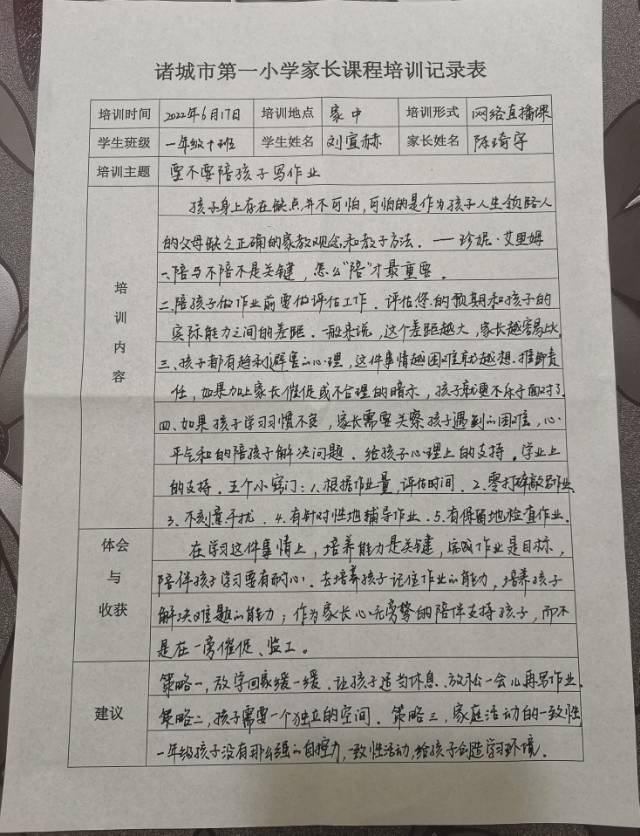 诸城市第一小学家长课程培训记录表
培训时间 2022年6月17日 培训地点 家中 培训形式 网络直播课
学生班级 一年级十班 学生姓名 刘宜赫 家长姓名 陈琦宇
培训主题 要不要陪孩子写作业
培训内容
孩子身上存在缺点并不可怕,可怕的是作为孩子人生领路人
的父母缺乏正确的家教观念和教子方法.——珍妮·艾里姆
一.陪与不陪不是关键,怎么“陪”才最重要.
二.陪孩子做作业前要做评估工作.评估您的预期和孩子的
实际能力之间的差距.一般来说,这个差距越大,家长越容易上火.
三.孩子都有趋利避害的心理,这件事情越困难就越想推卸责
任,如果加上家长催促或不合理的暗示,孩子就更不乐于面对了.
四、如果孩子学习习惯不良,家长需要关察孩子遇到的困难,心
平气和的陪孩子解决问题.给孩子心理上的支持,学业上
的支持.五个小窍门:1.根据作业量,评估时间.2.零打碎敲写作业.
3.不刻意干扰.4.有针对性地辅导作业.5.有保留地检查作业.
体会与收获
在学习这件事情上,培养能力是关键,完成作业是目标,
陪伴孩子学习要有耐心.去培养孩子记住作业的能力,培养孩子
解决难题的能力;作为家长心无旁骛的陪伴支持孩子,而不
是在一旁催促、监工。
建议
策略一,放学回家缓一缓.让孩子适当休息、放松一会儿再写作业.
策略二,孩子需要一个独立的空间.策略三,家庭活动的一致性.
一年级孩子没有那么强的自控力,一致性活动,给孩子创造学习环境.